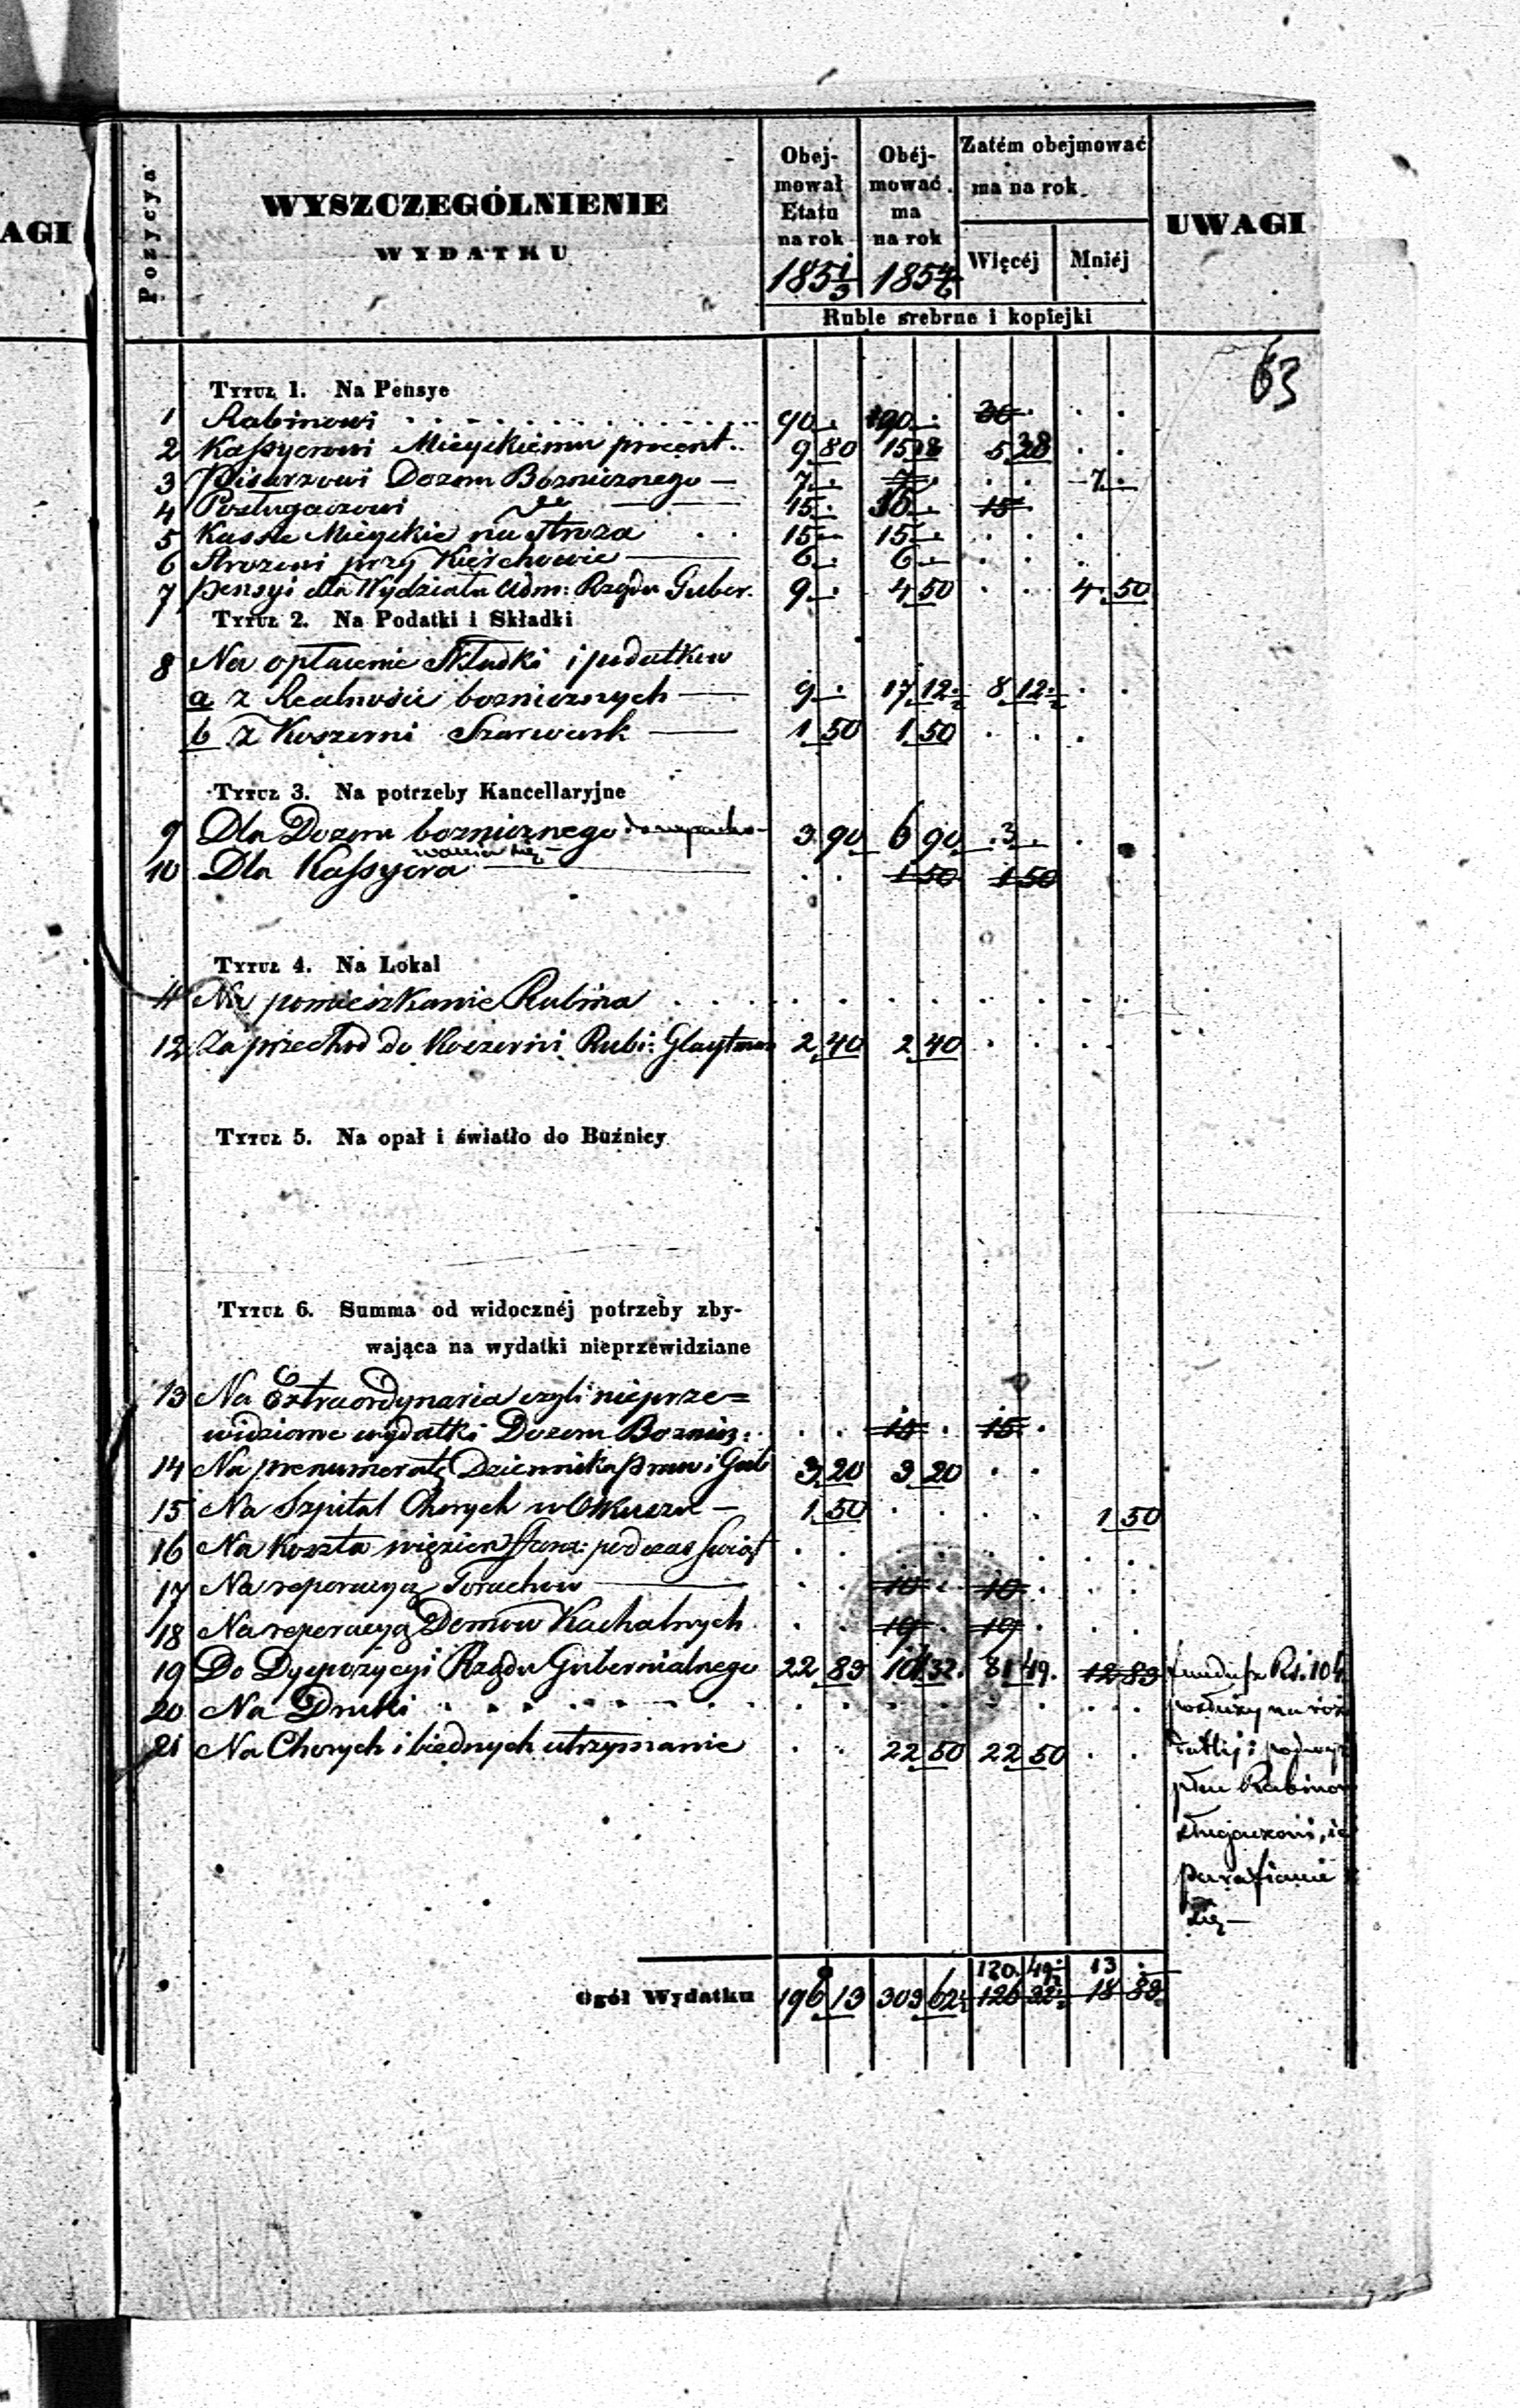 AGI
63
Pozycya
WYSZCZEGÓLNIENIE
WYDATKU
Obej-
mował
Etatu
na rok
185 1/3
Obéj-
mować
ma
na rok
185 4/6
Zatém obejmować
ma na rok
Więcéj
Mniéj
Ruble srebrne i kopiejki
UWAGI
Tytuł 1. Na Pensye
1 Rabinowi 90 . 90 . 30 . . .
2 Kassyerowi Mieyskiemu procent. 9 80 15 5 28 . .
3 Pisarzowi Dozoru Bozniczneg​o — 7 . 7 . . . 7 .
4 Posługaczowi 15 . 30 . 15 .
5 Kassie Mieyskie na stroza 15 15 . . .
6 Strozowi przy Kierchowie 6 . 6 . . .
7 Pensyi dla Wydziału Adm: Rządu Guber. 9 . 4 50 . . 4 50
Tytuł 2. Na Podatki i Składki
8 Na opłacenie Składki i podatków
a z Realności boznicznych 9 . 17 12 8 12 . .
b z Koszerni Szarwark 1 50 1 50 . . .
Tytuł 3. Na potrzeby Kancellaryjne
9 Dla Dozoru bozniczneg​o 3 90 6 90 3 . .
10 Dla Kassyera . . 1 50 1 50
Tytuł 4. Na Lokal
11 Na pomieszkanie Rabina
12 Za przechod do Koszerni Rubi: Glaytman 2 40 2 40 . . . .
Tytuł 5. Na opał i światło do Buźnicy
Tytuł 6. Summa od widocznéj potrzeby zby-
wająca na wydatki nieprzewidziane
13 Na Extraordynaria czyli nieprze=
widziane wydatki Dozoru Boznicz: . . 15 . 15 .
14 Na prenumeratę Dziennika Praw i Gub 3 20 3 20 . .
15 Na Szpital Chorych w Olkuszu — 1 50 . . . . 1 50
16 Na Koszta więzien podczas Swiąt
17 Na reperacyą Torachow . . 10 . 10 . . .
18 Na reperacyą Domow Kachalnych . . 10 . 10 . . .
19 Do Dyspozycyi Rządu Gubernialnego 22 83 104 32 81 49 12 83
20 Na Druki
21 Na Chorych i biednych utrzymanie . . 22 50 22 50 . .
fundusz Rs. 104
Rabinow
parafianie
się —
120 49 13
Ogół Wydatku 196 13 309 62 126 32 18 83